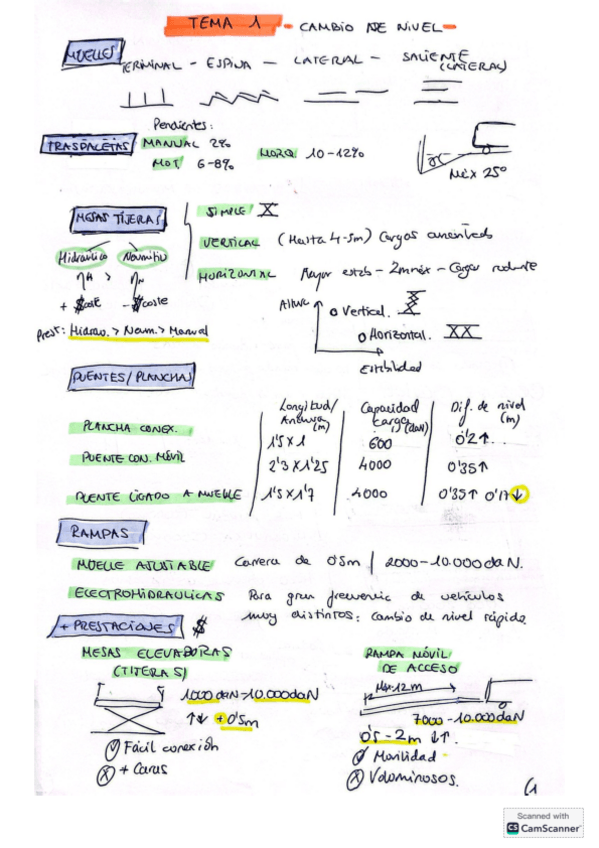 TEMA 1 - CAMBIO DE NIVEL -
MUELLES
TERMINAL - ESPINA - LATERAL - SALIENTE
(LATERAL)
Pendientes:
TRASPALETAS MANUAL 2% MORO. 10-12%
MOT. 6-8%
Máx 25º
MESAS TIJERAS
SIMPLE
VERTICAL (Hasta 4-5m) Cargas
HORIZONTAL Mayor estab - 2m máx - Cargas rodante
Hidráulico Neumático
ηH > ηN
+ $coste - $coste
Prest: Hidrau. > Neum. > Manual
Altura
Vertical.
Horizontal.
Estabilidad
PUENTES/PLANCHAS
Longitud/ Anchura (m) Capacidad carga (daN) Dif. de nivel (m)
PLANCHA CONEX. 1'5 x 1 600 0'2↑
PUENTE CON. MÓVIL 2'3 x 1'25 4000 0'35↑
PUENTE LIGADO A MUELLE 1'5 x 1'7 4000 0'35↑ 0'17↓
RAMPAS
MUELLE AJUSTABLE Carrera de 0'5m / 2000-10.000 daN.
ELECTROHIDRAULICAS Para gran frecuencia de vehículos
muy distintos: Cambio de nivel rápido.
+ PRESTACIONES $
MESAS ELEVADORAS
(TIJERAS)
1000 daN-10.000 daN
↑↓ +0'5m
Fácil conexión
+ Caras
RAMPA MÓVIL
DE ACCESO
Máx: 12m
7000-10.000 daN
0'5-2m ↓↑.
Movilidad
Voluminosos.
Scanned with
CS CamScanner